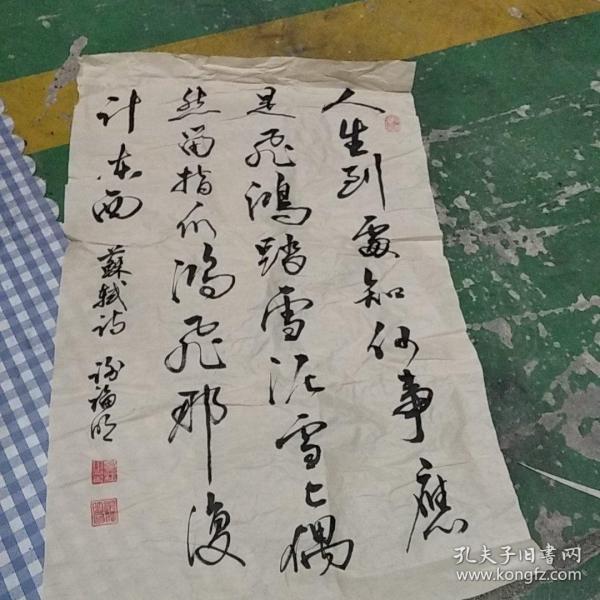 人生到處知何事應
是飛鴻踏雪泥雪上偶
然留指爪鴻飛那復
計東西
蘇軾詩
孔夫子旧书网
www.kongfz.com